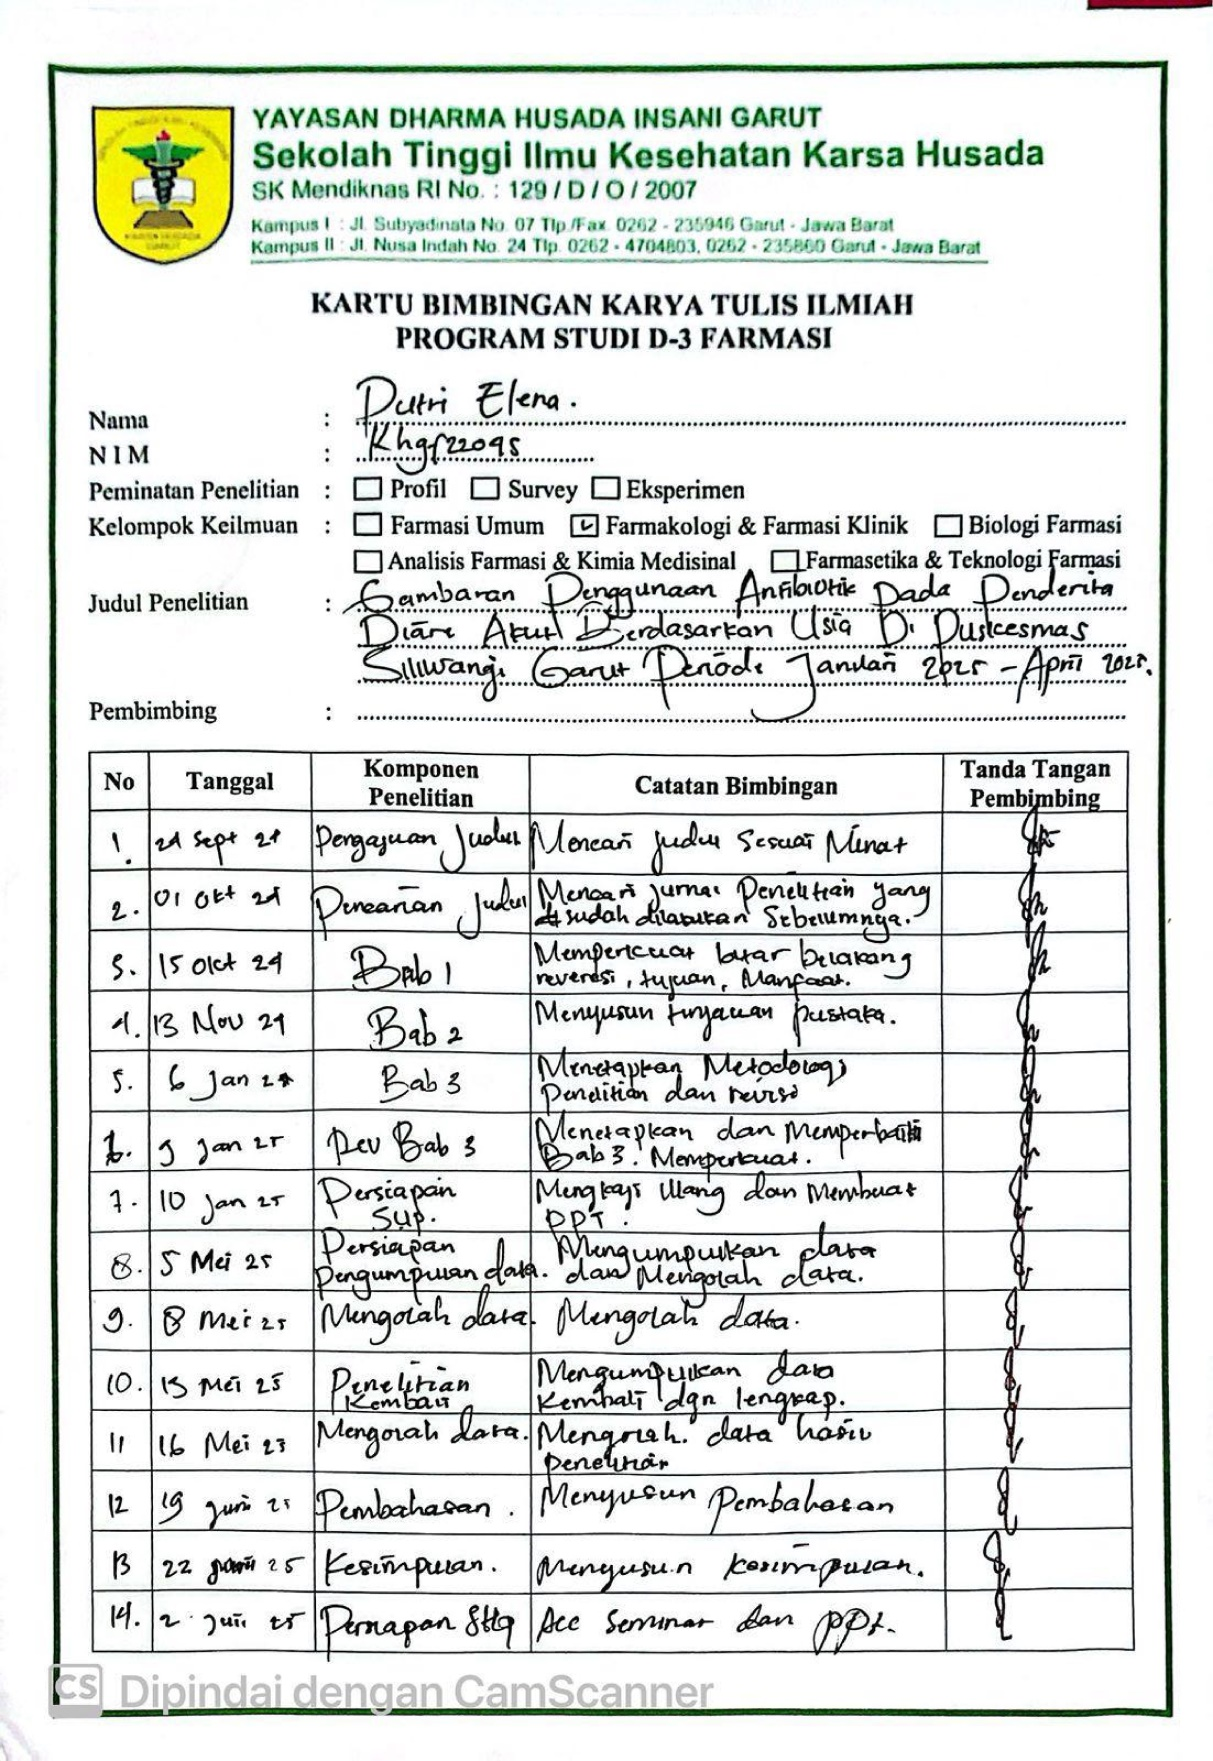 YAYASAN DHARMA HUSADA INSANI GARUT
Sekolah Tinggi Ilmu Kesehatan Karsa Husada
SK Mendiknas RI No. : 129 / D / O / 2007
Kampus I : Jl. Subyadinata No. 07 Tlp./Fax. 0262 - 235946 Garut - Jawa Barat
Kampus II : Jl. Nusa Indah No. 24 Tlp. 0262 - 4704803, 0262 - 235860 Garut - Jawa Barat
KARTU BIMBINGAN KARYA TULIS ILMIAH
PROGRAM STUDI D-3 FARMASI
Nama : Putri Elena.
NIM : Khgf22095
Peminatan Penelitian : Profil Survey Eksperimen
Kelompok Keilmuan : Farmasi Umum Farmakologi & Farmasi Klinik Biologi Farmasi
Analisis Farmasi & Kimia Medisinal Farmasetika & Teknologi Farmasi
Judul Penelitian : Gambaran Penggunaan Antibiotik Pada Penderita
Diare Akut Berdasarkan Usia Di Puskesmas
Siliwangi Garut Periode Januari 2025 - April 2025.
Pembimbing :
No Tanggal Komponen Penelitian Catatan Bimbingan Tanda Tangan Pembimbing
1. 24 Sept 24 Pengajuan Judul Mencari judul Sesuai Minat
2. 01 Okt 24 Pencarian Judul Mencari jurnal Penelitian yang
sudah dilakukan Sebelumnya.
3. 15 Okt 24 Bab 1 Memperkuat latar belakang
reverensi, tujuan, Manfaat.
4. 13 Nov 24 Bab 2 Menyusun tinjauan pustaka.
5. 6 Jan Bab 3 Menetapkan Metodologi
Penelitian dan revisi
6. 9 Jan 25 Rev Bab 3 Menetapkan dan Memperbaiki
Bab 3. Memperkuat.
7. 10 Jan 25 Persiapan Sup. Mengkaji Ulang dan Membuat
PPT.
8. 5 Mei 25 Persiapan Pengumpulan data. Mengumpulkan data
dan Mengolah data.
9. 8 Mei 25 Mengolah data. Mengolah data.
10. 13 Mei 25 Penelitian Kembali Mengumpulkan data
Kembali dgn lengkap.
11 16 Mei 25 Mengolah data. Mengolah. data hasil
penelitian
12 19 juni 25 Pembahasan. Menyusun Pembahasan
13 22 juni 25 Kesimpulan. Menyusun kesimpulan.
14. 2 Juli 25 Persiapan Acc Seminar dan PPt.
CS Dipindai dengan CamScanner